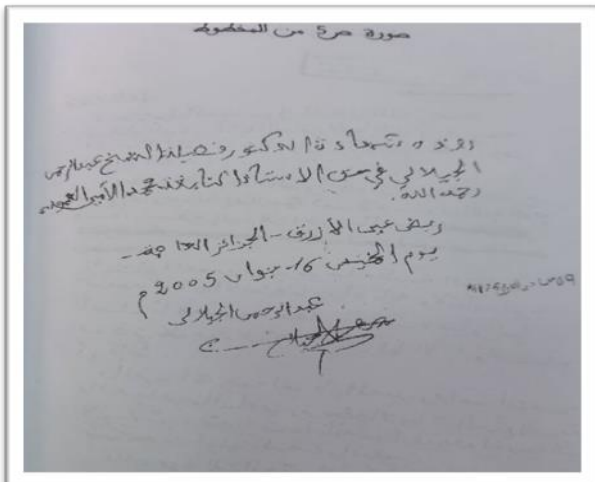 صورة ص5 من المخطوط
وهذه شهادة الدكتور فضيلة الشيخ عبد الرحمن
الجيلالي في حق الأستاذ محمد الأمين العمودي
رحمه الله.
عين الأزرق - الجزائر العاصمة -
يوم الخميس 16 - جوان 2005م
عبد الرحمن الجيلالي